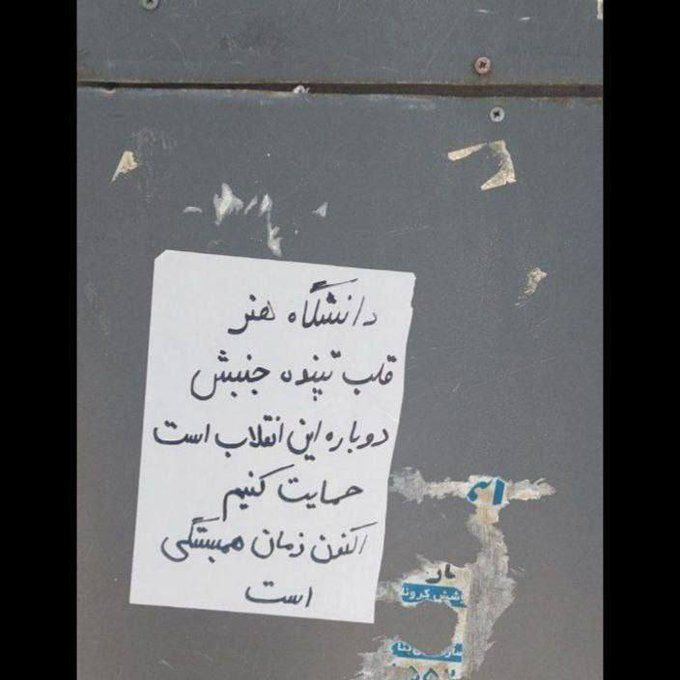 دانشگاه هنر
قلب تپنده جنبش
دوباره این انقلاب است
حمایت کنیم
اکنون زمان همبستگی
است